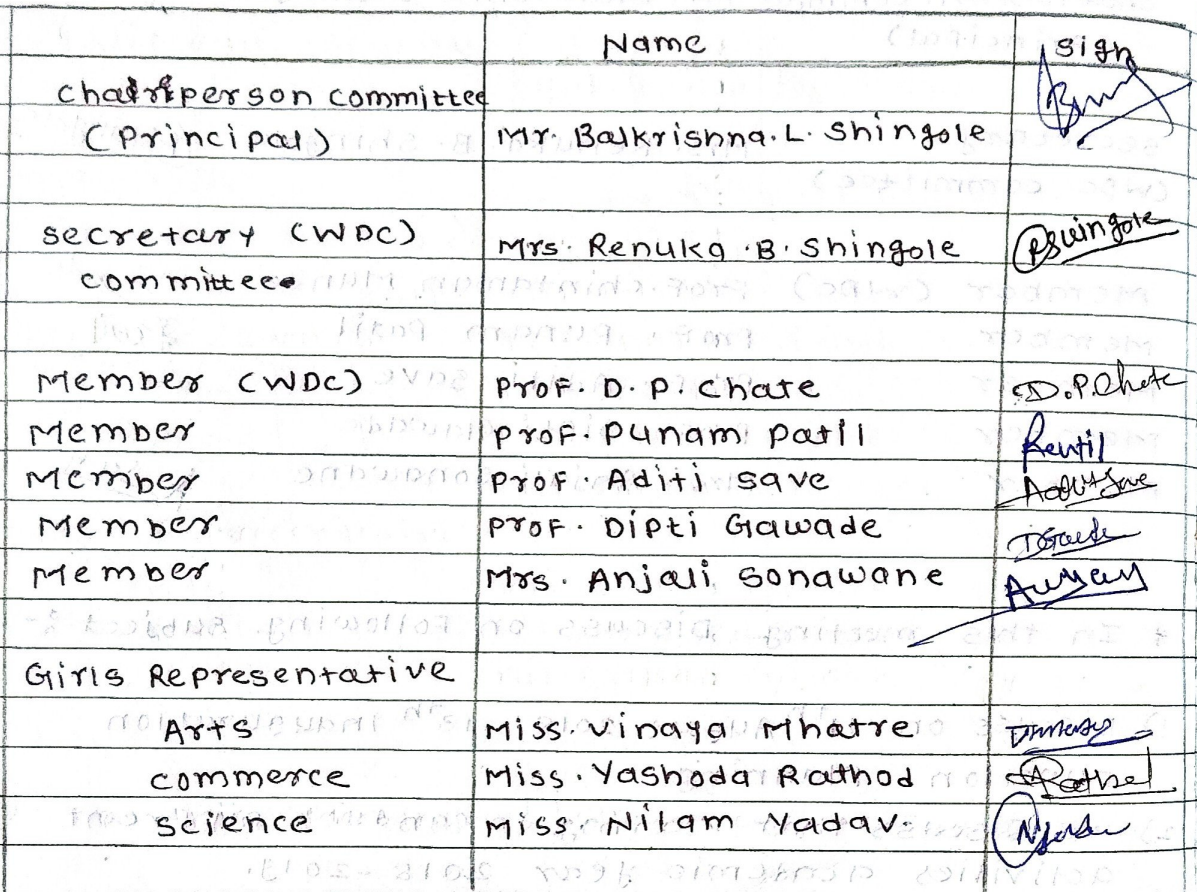 Name sign
Chairperson committee
(Principal) Mr. Balkrishna. L. Shingole
secretary (WDC) Mrs. Renuka .B. Shingole
committee
Member (WDC) Prof. D. P. Chate D.P.Chate
Member Prof. Punam Patil
Member Prof. Aditi Save
Member Prof. Dipti Gawade
Member Mrs. Anjali Sonawane
Girls Representative
Arts Miss. Vinaya Mhatre
commerce Miss. Yashoda Rathod
science Miss. Nilam Yadav.